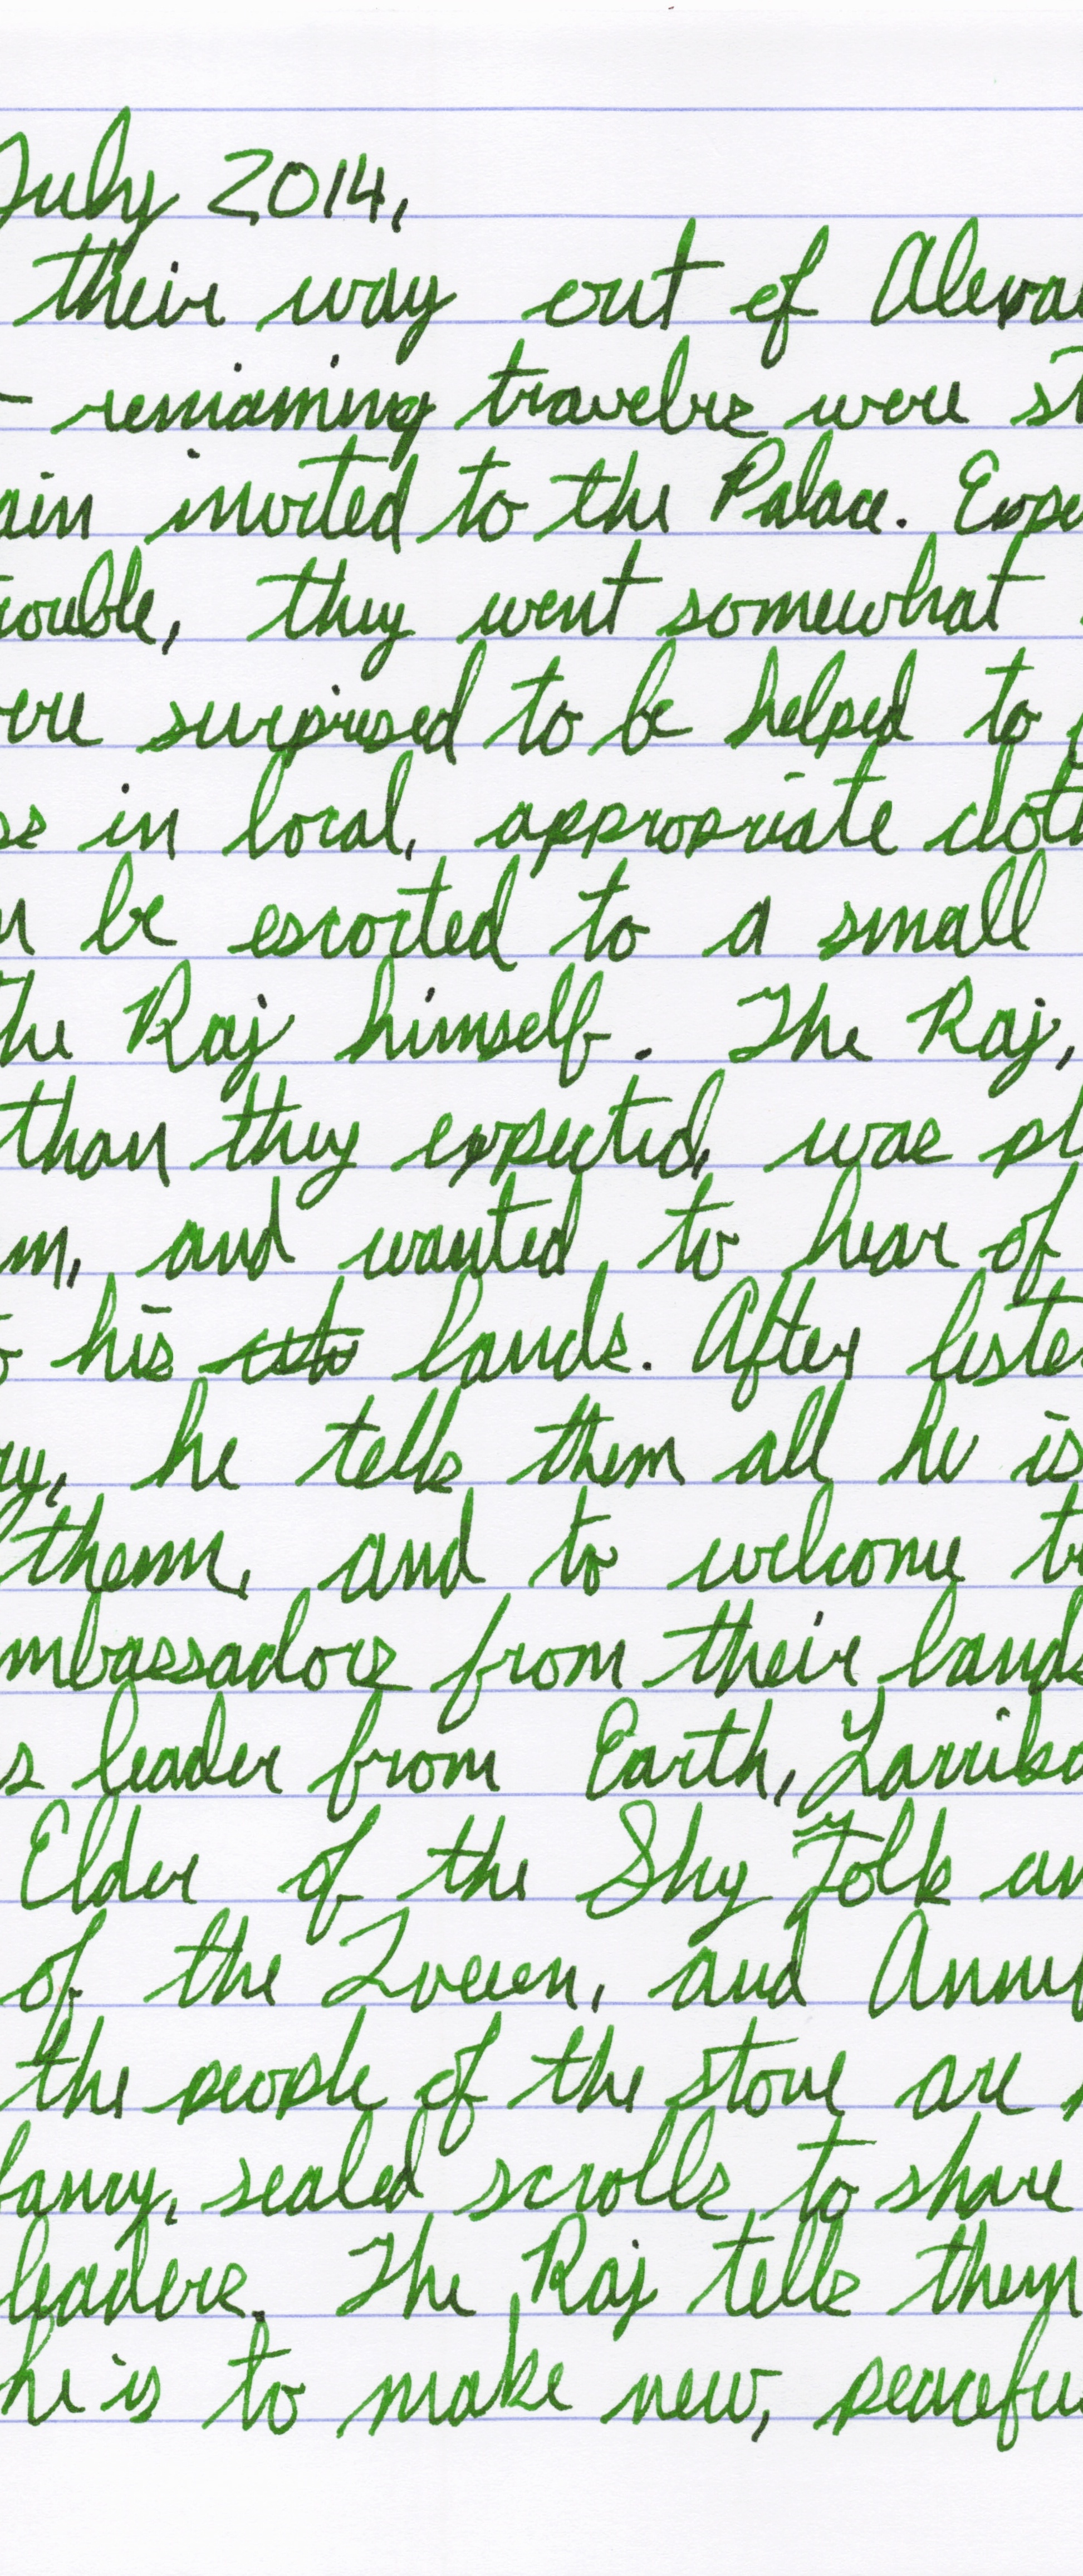 July 2014,
their way out of Alexa
- remaining travelrs were st
ain invited to the Palace. Expe
rouble, they went somewhat
ere surprised to be helped to
ss in local, appropriate cloth
n be escorted to a small
the Raj himself. The Raj,
than they expected, was pl
m, and wanted to hear of
o his lands. After liste
ry, he tells them all he is
them, and to welcome tr
mbassadors from their lands
s leader from Earth,
Elder of the Sky Folk an
of the Queen, and
the people of the stone are
fancy, sealed scrolls to share
leaders. The Raj tells them
he is to make new, peacefu